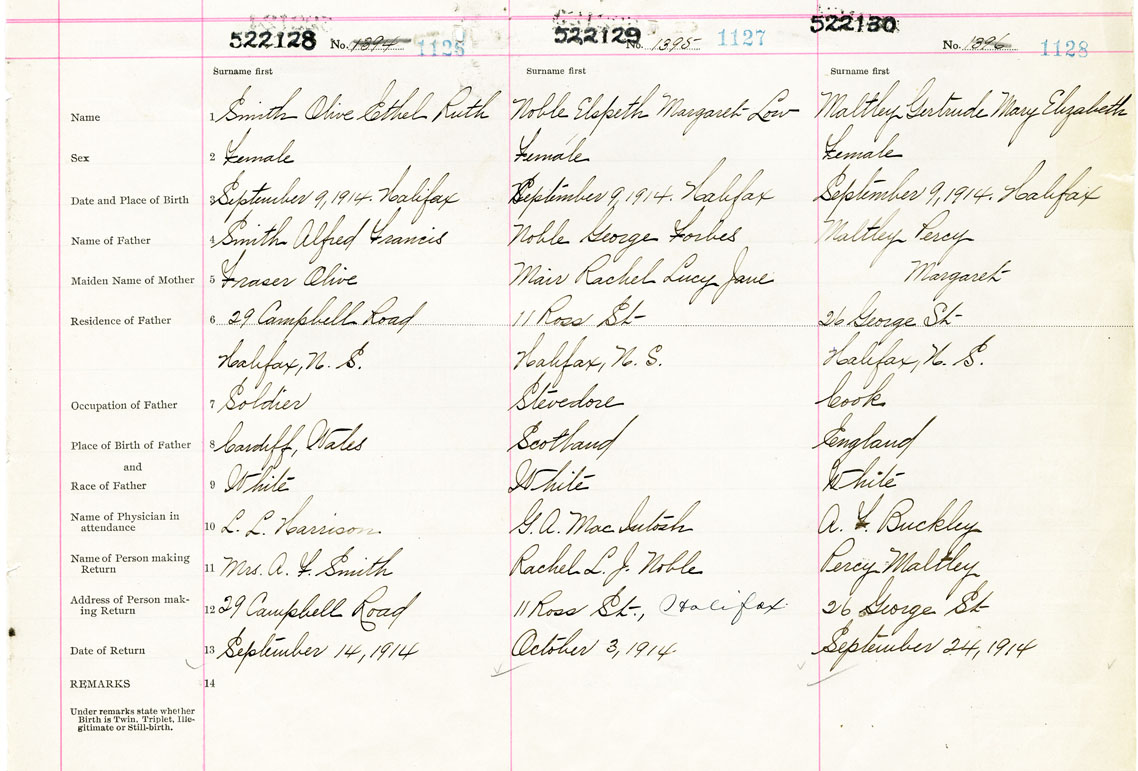 522128 No. 1394 1125 522129 No. 1395 1127 522130 No. 1396 1128
Surname first Surname first Surname first
Name 1 Smith Olive Ethel Ruth Noble Elspeth Margaret Low Maltley Gertrude Mary Elizabeth
Sex 2 Female Female Female
Date and Place of Birth 3 September 9, 1914. Halifax September 9, 1914. Halifax September 9, 1914. Halifax
Name of Father 4 Smith Alfred Francis Noble George Forbes Maltley Percy
Maiden Name of Mother 5 Fraser Olive Mair Rachel Lucy Jane Margaret
Residence of Father 6 29 Campbell Road 11 Ross St 26 George St
Halifax, N. S. Halifax, N. S. Halifax, N. S.
Occupation of Father 7 Soldier Stevedore Cook
Place of Birth of Father 8 Cardiff, Wales Scotland England
and
Race of Father 9 White White White
Name of Physician in
attendance 10 L. L. Harrison G. A. MacIntosh A. F. Buckley
Name of Person making
Return 11 Mrs. A. F. Smith Rachel L. J. Noble Percy Maltley
Address of Person mak-
ing Return 12 29 Campbell Road 11 Ross St., Halifax 26 George St
Date of Return 13 September 14, 1914 October 3, 1914 September 24, 1914
REMARKS 14
Under remarks state whether
Birth is Twin, Triplet, Ille-
gitimate or Still-birth.